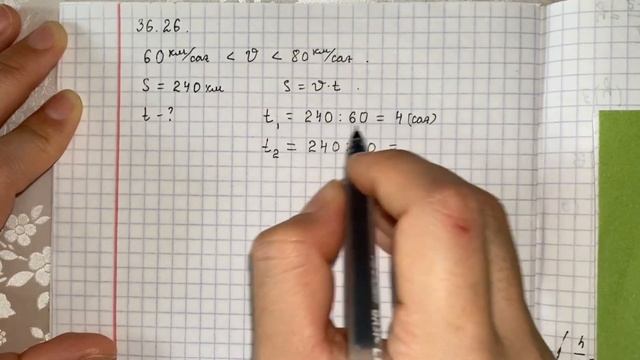 36.26.
60 км/сағ < v < 80 км/сағ.
S = 240 км S = v·t.
t - ? t₁ = 240 : 60 = 4 (сағ)
t₂ = 240 : 0 =
4